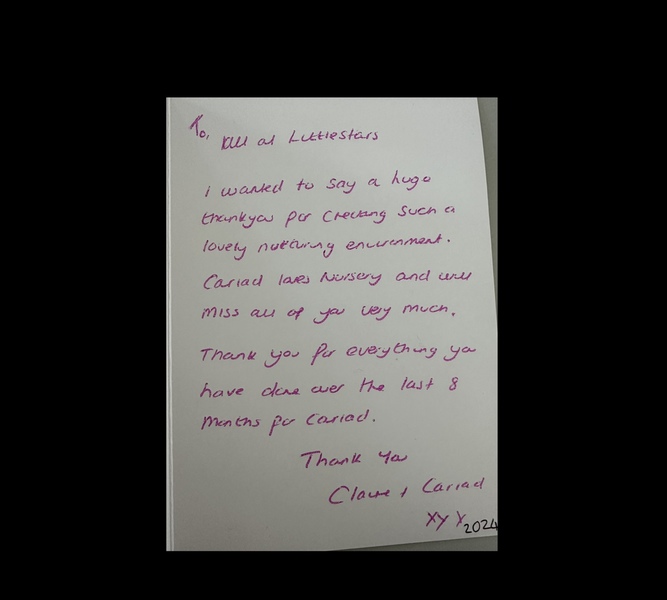 To,
All at Littlestars
i wanted to say a huge
thankyou for creating such a
lovely nurturing environment.
Cariad loves Nursery and will
miss all of you very much.
Thank you for everything you
have done over the last 8
months for Cariad.
Thank You
Claire + Cariad
XXX
2024